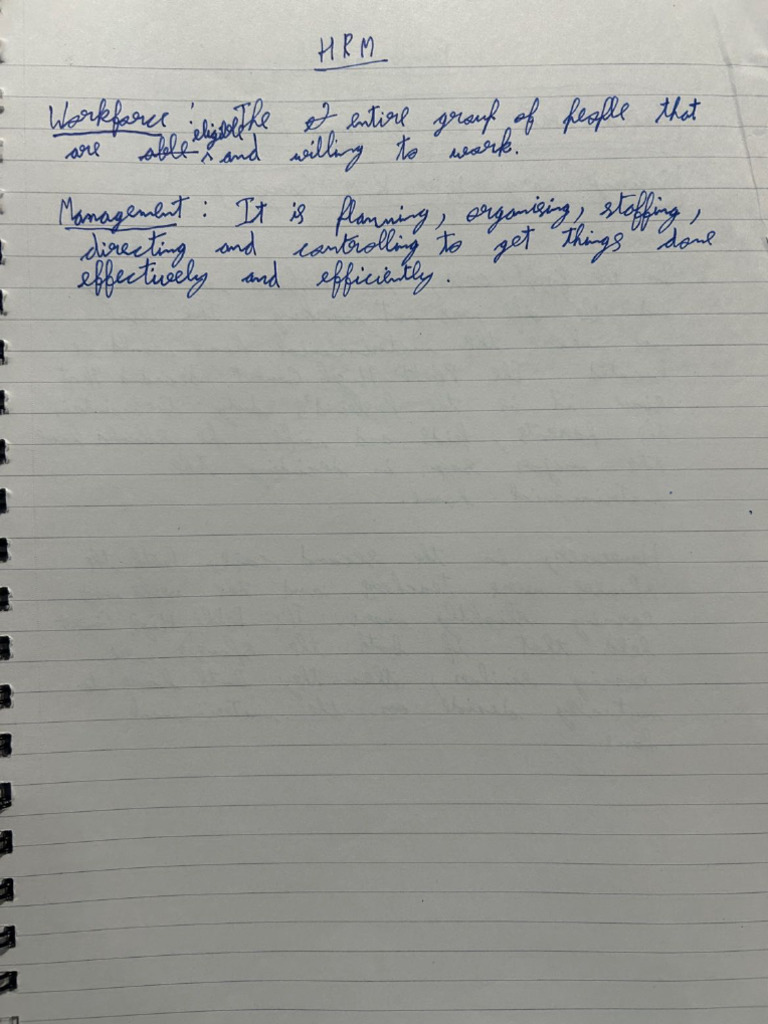 HRM
Workforce : The entire group of people that
are able eligible and willing to work.
Management : It is planning, organising, staffing,
directing and controlling to get things done
effectively and efficiently.